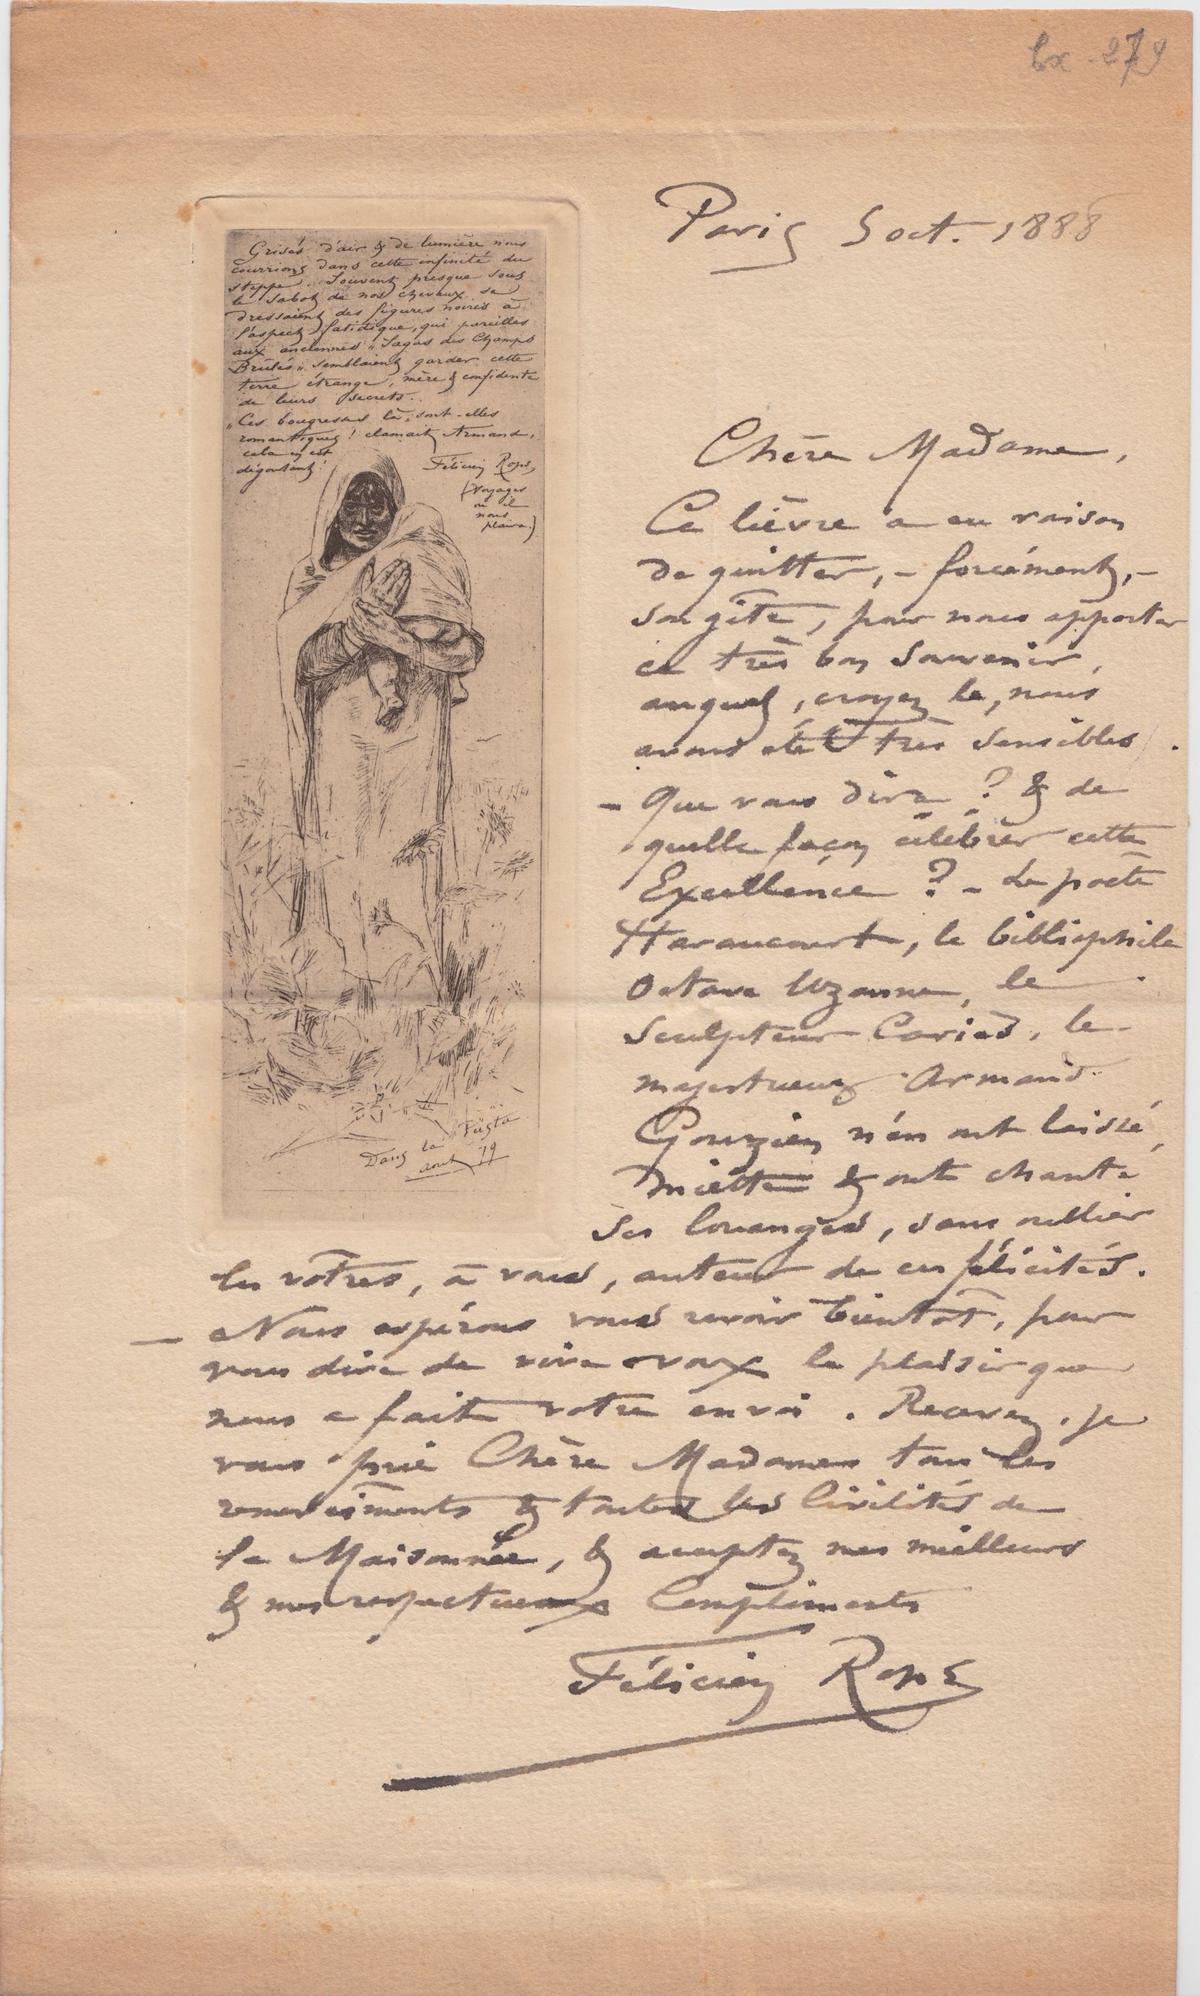 Paris 5 oct. 1888
Grisés d'air & de lumière nous
courrions dans cette infinité du
steppe. Souvent presque sous
le sabot de nos chevaux se
dressaient des figures noires à
l'aspect fatidique, qui pareilles
aux anciennes „Sagas des Champs
Brûlés„ semblaient garder cette
terre étrange, mère & confidente
de leurs secrets..
„Ces bougresses là, sont-elles
romantiques! clamait Armand,
cela en est
dégoutant!
Félicien Rops,
(Voyages
où il
nous
plaira.)
Dans la Füsta
aout 79
Chère Madame,
Ce lièvre a eu raison
de quitter, - forcément, -
son gîte, pour nous apporter
ce très bon souvenir,
auquel, croyez le, nous
avons été très sensibles.
- Que vous dire? & de
quelle façon célébrer cette
Excellence? - Le poëte
Haraucourt, le bibliophile
Octave Uzanne, le
sculpteur Cariès, le
majestueux Armand
Gouzien n'en ont laissé
miette & ont chanté
ses louanges, sans oublier
les vôtres, à vous, auteur de ces félicités.
- Nous espérons vous revoir bientôt, pour
vous dire de vive voix le plaisir que
nous a fait votre envoi. Recevez, je
vous prie Chère Madame tous les
remerciments & toutes les civilités de
la Maisonnée, & acceptez mes meilleurs
& mes respectueux Compliments
Félicien Rops